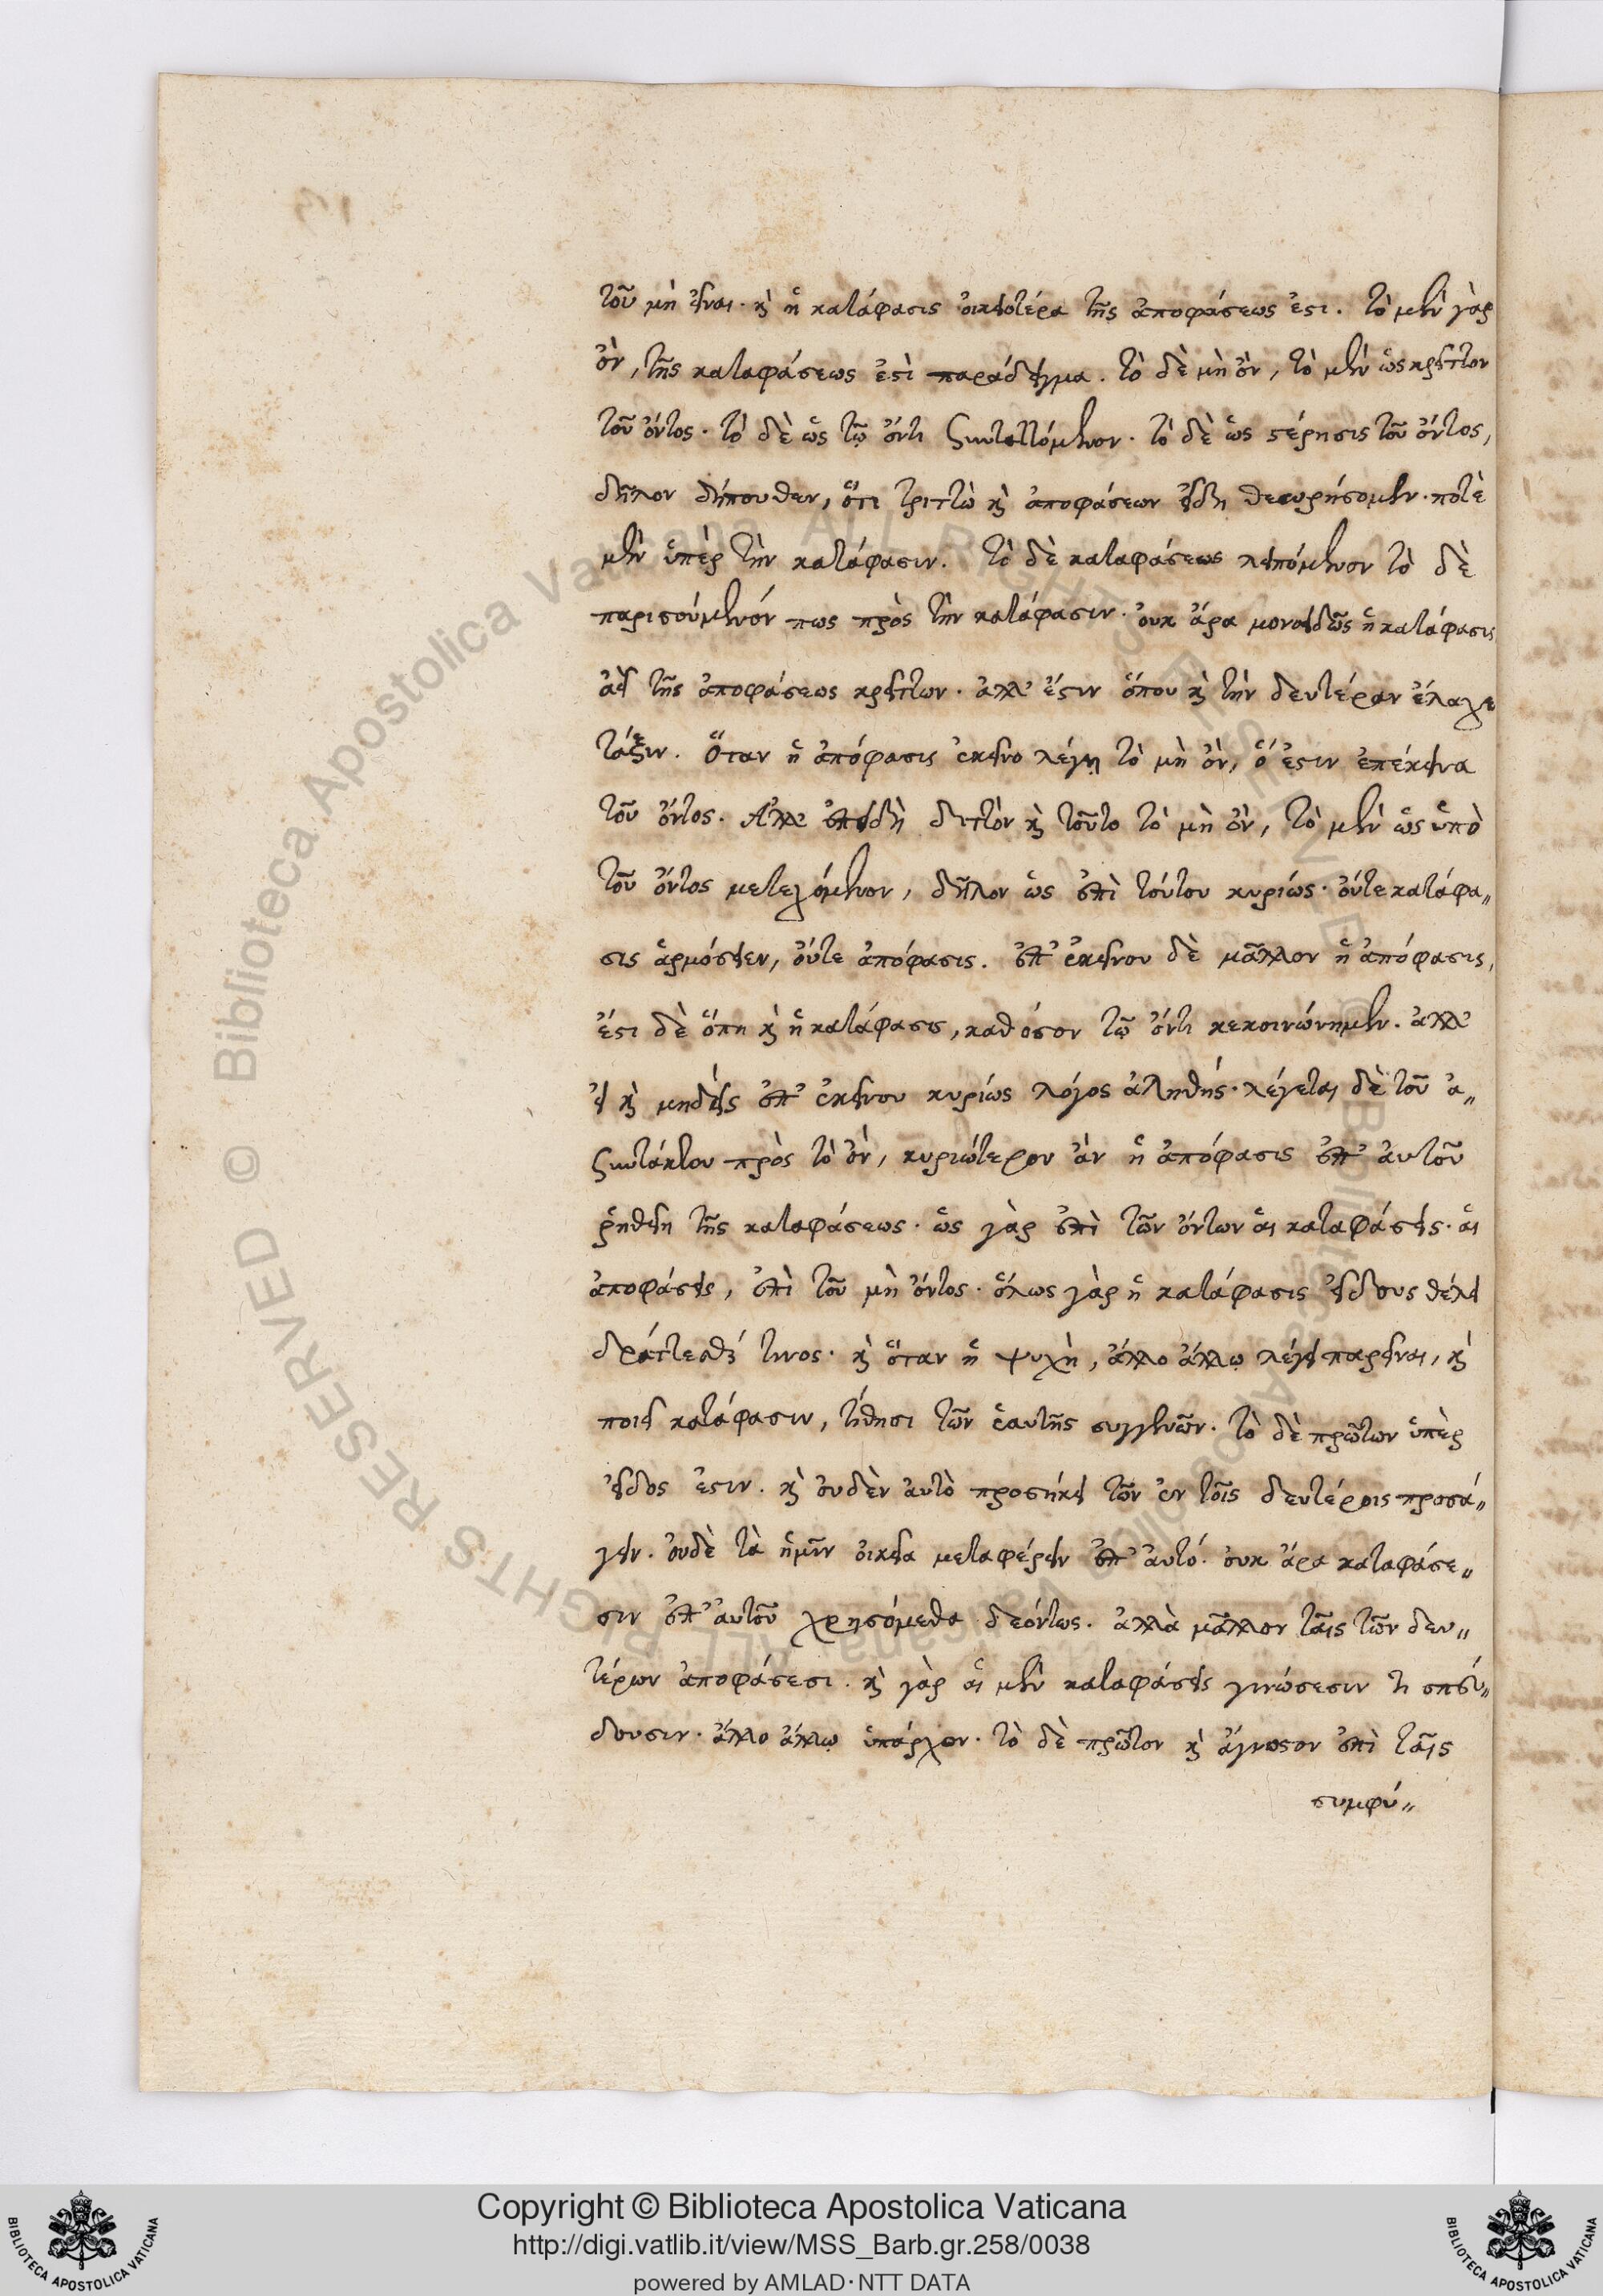 τοῦ μὴ εἶναι· καὶ ἡ κατάφασις οἰκειοτέρα τῆς ἀποφάσεως ἐστι. τὸ μὲν γὰρ
ὂν, τῆς καταφάσεως ἐστὶ παράδειγμα. τὸ δὲ μὴ ὂν, τὸ μὲν ὡς κρεῖττον
τοῦ ὄντος· τὸ δὲ ὡς τῷ ὄντι συνταττόμενον· τὸ δὲ ὡς στέρησις τοῦ ὄντος,
δῆλον δήπουθεν, ὅτι τριττὼ καὶ ἀποφάσεων εἴδη θεωρήσομεν· ποτὲ
μὲν ὑπὲρ τὴν κατάφασιν. τὸ δὲ καταφάσεως λειπόμενον τὸ δὲ
παρισούμενόν πως πρὸς τὴν κατάφασιν· οὐκ ἄρα μονοειδῶς ἡ κατάφασις
ἀεὶ τῆς ἀποφάσεως κρείττων· ἀλλ' ἔστιν ὅπου καὶ τὴν δευτέραν ἔλαχε
τάξιν. Ὅταν ἡ ἀπόφασις ἐκεῖνο λέγῃ τὸ μὴ ὂν, ὅ ἐστιν ἐπέκεινα
τοῦ ὄντος. Ἀλλ' ἐπειδὴ διττὸν καὶ τοῦτο τὸ μὴ ὂν, τὸ μὲν ὡς ὑπὸ
τοῦ ὄντος μετεχόμενον, δῆλον ὡς ἐπὶ τούτου κυρίως· οὔτε κατάφα„
σις ἁρμόσειεν, οὔτε ἀπόφασις. ἐπ' ἐκείνου δὲ μᾶλλον ἡ ἀπόφασις,
ἔστι δὲ ὅπη καὶ ἡ κατάφασις, καθόσον τῷ ὄντι κεκοινώνημεν. ἀλλ'
εἰ καὶ μηδεὶς ἐπ' ἐκείνου κυρίως λόγος ἀληθής· λέγεται δὲ τοῦ ἀ„
συντάκτου πρὸς τὸ ὂν, κυριώτερον ἂν ἡ ἀπόφασις ἐπ' αὐτοῦ
ῥηθείη τῆς καταφάσεως· ὡς γὰρ ἐπὶ τῶν ὄντων αἱ καταφάσεις· αἱ
ἀποφάσεις, ἐπὶ τοῦ μὴ ὄντος· ὅλως γὰρ ἡ κατάφασις εἴδους θέλει
δράττεσθαί τινος· καὶ ὅταν ἡ ψυχὴ, ἄλλο ἄλλῳ λέγει παρεῖναι, καὶ
ποιεῖ κατάφασιν, τίθησι τῶν ἑαυτῆς συγγενῶν. τὸ δὲ πρῶτων ὑπὲρ
εἶδος ἐστιν. καὶ οὐδὲν αὐτὸ προσήκει τῶν ἐν τοῖς δευτέροις προσά„
γειν. οὐδὲ τὰ ἡμῖν οἰκεῖα μεταφέρειν ἐπ' αὐτό. οὐκ ἄρα καταφάσε„
σιν ἐπ' αὐτοῦ χρησόμεθα δεόντως. ἀλλὰ μᾶλλον ταῖς τῶν δευ„
τέρων ἀποφάσεσι. καὶ γὰρ αἱ μὲν καταφάσεις γινώσεσιν τι σπεύ„
δουσιν· ἄλλο ἄλλῳ ὑπάρχον· τὸ δὲ πρῶτον καὶ ἄγνωστον ἐπὶ ταῖς
συμφύ„
Copyright © Biblioteca Apostolica Vaticana
http://digi.vatlib.it/view/MSS_Barb.gr.258/0038
powered by AMLAD·NTT DATA